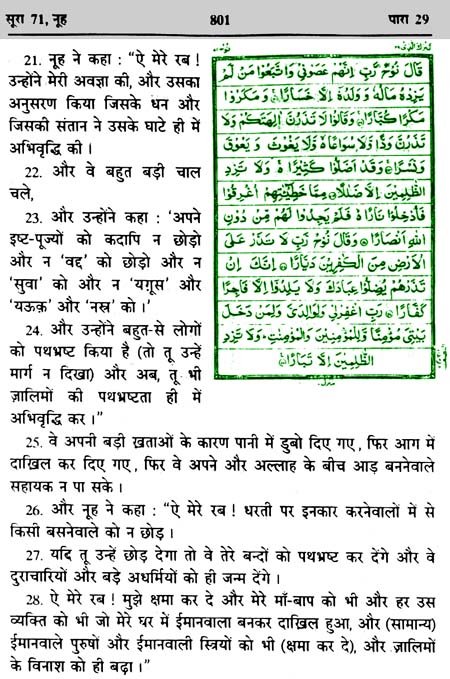 सूरा 71, नूह
801
पारा 29
21. नूह ने कहा : “ऐ मेरे रब !
उन्होंने मेरी अवज्ञा की, और उसका
अनुसरण किया जिसके धन और
जिसकी संतान ने उसके घाटे ही में
अभिवृद्धि की ।
22. और वे बहुत बड़ी चाल
चले,
23. और उन्होंने कहा : 'अपने
इष्ट-पूज्यों को कदापि न छोड़ो
और न 'वद्द' को छोड़ो और न
'सुवा' को और न 'यग़ूस' और
'यऊक़' और 'नस्र' को ।'
24. और उन्होंने बहुत-से लोगों
को पथभ्रष्ट किया है (तो तू उन्हें
मार्ग न दिखा) और अब, तू भी
ज़ालिमों की पथभ्रष्टता ही में
अभिवृद्धि कर ।”
قَالَ نُوْحٌ رَّبِّ اِنَّهُمْ عَصَوْنِيْ وَاتَّبَعُوْا مَنْ لَّمْ
يَزِدْهُ مَالُهٗ وَوَلَدُهٗٓ اِلَّا خَسَارًا وَمَكَرُوْا
مَكْرًا كُبَّارًا وَقَالُوْا لَا تَذَرُنَّ اٰلِهَتَكُمْ وَلَا
تَذَرُنَّ وَدًّا وَّلَا سُوَاعًا وَّلَا يَغُوْثَ وَيَعُوْقَ
وَنَسْرًا وَقَدْ اَضَلُّوْا كَثِيْرًا وَلَا تَزِدِ
الظّٰلِمِيْنَ اِلَّا ضَلٰلًا مِمَّا خَطِيْٓـٰٔتِهِمْ اُغْرِقُوْا
فَاُدْخِلُوْا نَارًا فَلَمْ يَجِدُوْا لَهُمْ مِّنْ دُوْنِ
اللّٰهِ اَنْصَارًا وَقَالَ نُوْحٌ رَّبِّ لَا تَذَرْ عَلَى
الْاَرْضِ مِنَ الْكٰفِرِيْنَ دَيَّارًا اِنَّكَ اِنْ
تَذَرْهُمْ يُضِلُّوْا عِبَادَكَ وَلَا يَلِدُوْٓا اِلَّا فَاجِرًا
كَفَّارًا رَبِّ اغْفِرْلِيْ وَلِوَالِدَيَّ وَلِمَنْ دَخَلَ
بَيْتِيَ مُؤْمِنًا وَّلِلْمُؤْمِنِيْنَ وَالْمُؤْمِنٰتِ وَلَا تَزِدِ
الظّٰلِمِيْنَ اِلَّا تَبَارًا
25. वे अपनी बड़ी ख़ताओं के कारण पानी में डुबो दिए गए, फिर आग में
दाख़िल कर दिए गए, फिर वे अपने और अल्लाह के बीच आड़ बननेवाले
सहायक न पा सके ।
26. और नूह ने कहा : “ऐ मेरे रब ! धरती पर इनकार करनेवालों में से
किसी बसनेवाले को न छोड़ ।
27. यदि तू उन्हें छोड़ देगा तो वे तेरे बन्दों को पथभ्रष्ट कर देंगे और वे
दुराचारियों और बड़े अधर्मियों को ही जन्म देंगे ।
28. ऐ मेरे रब ! मुझे क्षमा कर दे और मेरे माँ-बाप को भी और हर उस
व्यक्ति को भी जो मेरे घर में ईमानवाला बनकर दाख़िल हुआ, और (सामान्य)
ईमानवाले पुरुषों और ईमानवाली स्त्रियों को भी (क्षमा कर दे), और ज़ालिमों
के विनाश को ही बढ़ा ।”